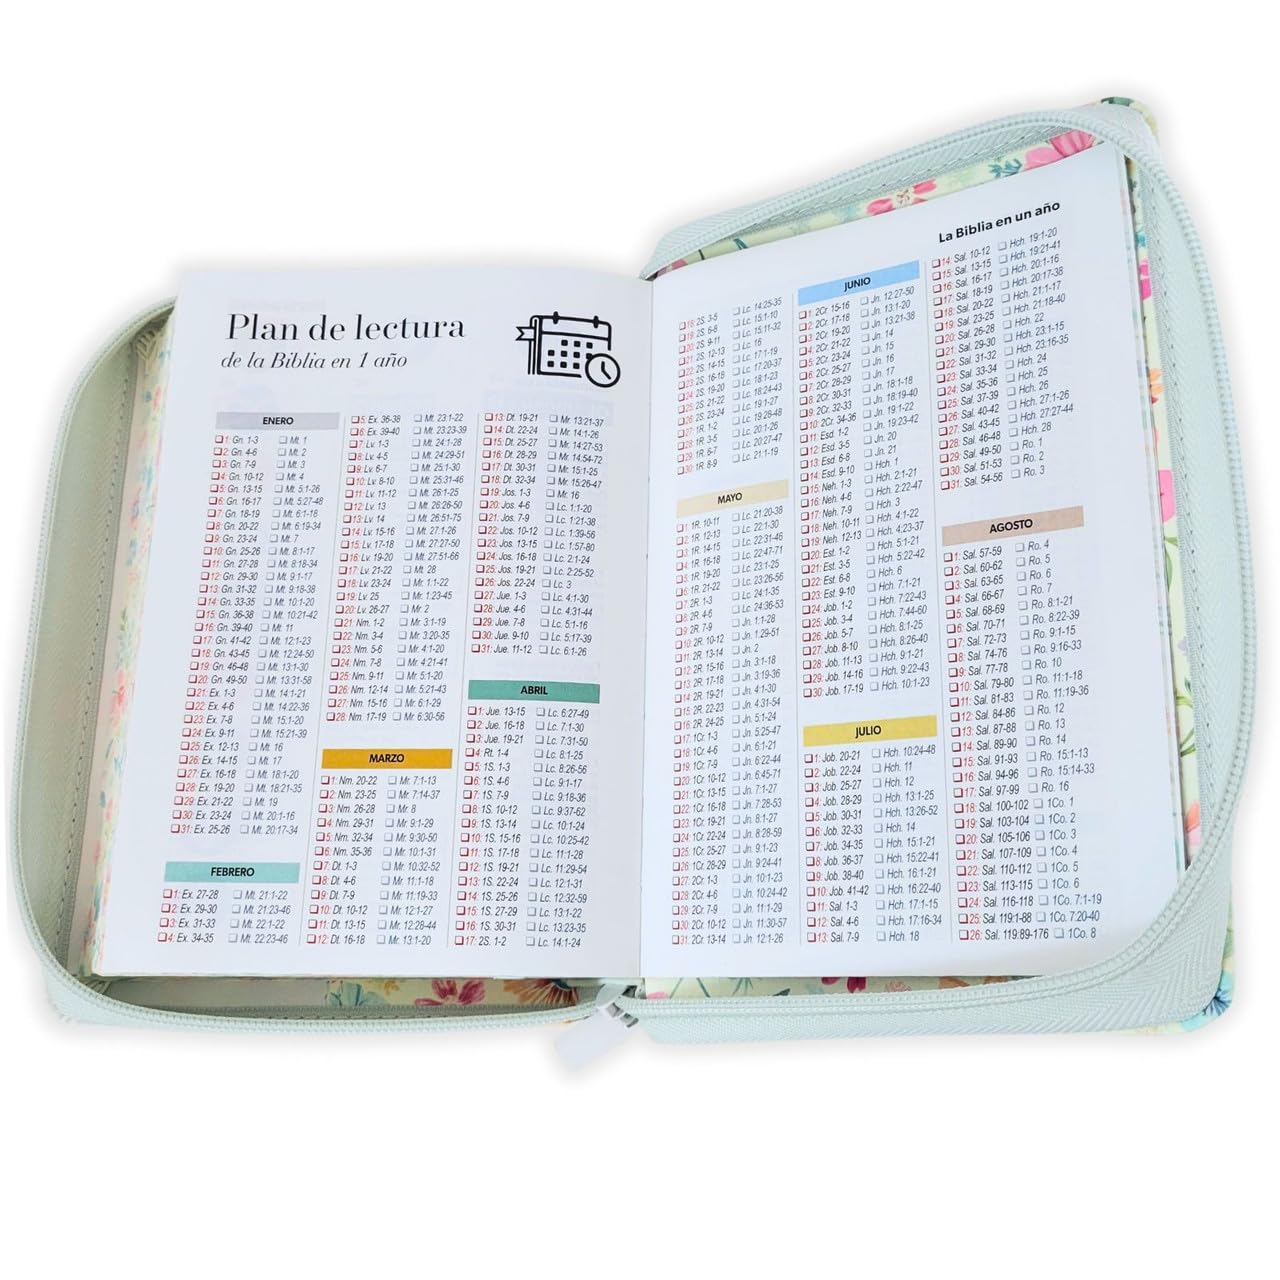 Plan de lectura
de la Biblia en 1 año
ENERO
1: Gn. 1-3 Mt. 1
2: Gn. 4-6 Mt. 2
3: Gn. 7-9 Mt. 3
4: Gn. 10-12 Mt. 4
5: Gn. 13-15 Mt. 5:1-26
6: Gn. 16-17 Mt. 5:27-48
7: Gn. 18-19 Mt. 6:1-18
8: Gn. 20-22 Mt. 6:19-34
9: Gn. 23-24 Mt. 7
10: Gn. 25-26 Mt. 8:1-17
11: Gn. 27-28 Mt. 8:18-34
12: Gn. 29-30 Mt. 9:1-17
13: Gn. 31-32 Mt. 9:18-38
14: Gn. 33-35 Mt. 10:1-20
15: Gn. 36-38 Mt. 10:21-42
16: Gn. 39-40 Mt. 11
17: Gn. 41-42 Mt. 12:1-23
18: Gn. 43-45 Mt. 12:24-50
19: Gn. 46-48 Mt. 13:1-30
20: Gn. 49-50 Mt. 13:31-58
21: Ex. 1-3 Mt. 14:1-21
22: Ex. 4-6 Mt. 14:22-36
23: Ex. 7-8 Mt. 15:1-20
24: Ex. 9-11 Mt. 15:21-39
25: Ex. 12-13 Mt. 16
26: Ex. 14-15 Mt. 17
27: Ex. 16-18 Mt. 18:1-20
28: Ex. 19-20 Mt. 18:21-35
29: Ex. 21-22 Mt. 19
30: Ex. 23-24 Mt. 20:1-16
31: Ex. 25-26 Mt. 20:17-34
FEBRERO
1: Ex. 27-28 Mt. 21:1-22
2: Ex. 29-30 Mt. 21:23-46
3: Ex. 31-33 Mt. 22:1-22
4: Ex. 34-35 Mt. 22:23-46
5: Ex. 36-38 Mt. 23:1-22
6: Ex. 39-40 Mt. 23:23-39
7: Lv. 1-3 Mt. 24:1-28
8: Lv. 4-5 Mt. 24:29-51
9: Lv. 6-7 Mt. 25:1-30
10: Lv. 8-10 Mt. 25:31-46
11: Lv. 11-12 Mt. 26:1-25
12: Lv. 13 Mt. 26:26-50
13: Lv. 14 Mt. 26:51-75
14: Lv. 15-16 Mt. 27:1-26
15: Lv. 17-18 Mt. 27:27-50
16: Lv. 19-20 Mt. 27:51-66
17: Lv. 21-22 Mt. 28
18: Lv 23-24 Mr. 1:1-22
19: Lv. 25 Mr. 1:23-45
20: Lv. 26-27 Mr. 2
21: Nm. 1-2 Mr. 3:1-19
22: Nm. 3-4 Mr. 3:20-35
23: Nm. 5-6 Mr. 4:1-20
24: Nm. 7-8 Mr. 4:21-41
25: Nm. 9-11 Mr. 5:1-20
26: Nm. 12-14 Mr. 5:21-43
27: Nm. 15-16 Mr. 6:1-29
28: Nm. 17-19 Mr. 6:30-56
MARZO
1: Nm. 20-22 Mr. 7:1-13
2: Nm. 23-25 Mr. 7:14-37
3: Nm. 26-28 Mr. 8
4: Nm. 29-31 Mr. 9:1-29
5: Nm. 32-34 Mr. 9:30-50
6: Nm. 35-36 Mr. 10:1-31
7: Dt. 1-3 Mr. 10:32-52
8: Dt. 4-6 Mr. 11:1-18
9: Dt. 7-9 Mr. 11:19-33
10: Dt. 10-12 Mr. 12:1-27
11: Dt. 13-15 Mr. 12:28-44
12: Dt. 16-18 Mr. 13:1-20
13: Dt. 19-21 Mr. 13:21-37
14: Dt. 22-24 Mr. 14:1-26
15: Dt. 25-27 Mr. 14:27-53
16: Dt. 28-29 Mr. 14:54-72
17: Dt. 30-31 Mr. 15:1-25
18: Dt. 32-34 Mr. 15:26-47
19: Jos. 1-3 Mr. 16
20: Jos. 4-6 Lc. 1:1-20
21: Jos. 7-9 Lc. 1:21-38
22: Jos. 10-12 Lc. 1:39-56
23: Jos. 13-15 Lc. 1:57-80
24: Jos. 16-18 Lc. 2:1-24
25: Jos. 19-21 Lc. 2:25-52
26: Jos. 22-24 Lc. 3
27: Jue. 1-3 Lc. 4:1-30
28: Jue. 4-6 Lc. 4:31-44
29: Jue. 7-8 Lc. 5:1-16
30: Jue. 9-10 Lc. 5:17-39
31: Jue. 11-12 Lc. 6:1-26
ABRIL
1: Jue. 13-15 Lc. 6:27-49
2: Jue. 16-18 Lc. 7:1-30
3: Jue. 19-21 Lc. 7:31-50
4: Rt. 1-4 Lc. 8:1-25
5: 1S. 1-3 Lc. 8:26-56
6: 1S. 4-6 Lc. 9:1-17
7: 1S. 7-9 Lc. 9:18-36
8: 1S. 10-12 Lc. 9:37-62
9: 1S. 13-14 Lc. 10:1-24
10: 1S. 15-16 Lc. 10:25-42
11: 1S. 17-18 Lc. 11:1-28
12: 1S. 19-21 Lc. 11:29-54
13: 1S. 22-24 Lc. 12:1-31
14: 1S. 25-26 Lc. 12:32-59
15: 1S. 27-29 Lc. 13:1-22
16: 1S. 30-31 Lc. 13:23-35
17: 2S. 1-2 Lc. 14:1-24
La Biblia en un año
18: 2S. 3-5 Lc. 14:25-35
19: 2S. 6-8 Lc. 15:1-10
20: 2S. 9-11 Lc. 15:11-32
21: 2S. 12-13 Lc. 16
22: 2S. 14-15 Lc. 17:1-19
23: 2S. 16-18 Lc. 17:20-37
24: 2S. 19-20 Lc. 18:1-23
25: 2S. 21-22 Lc. 18:24-43
26: 2S. 23-24 Lc. 19:1-27
27: 1R. 1-2 Lc. 19:28-48
28: 1R. 3-5 Lc. 20:1-26
29: 1R. 6-7 Lc. 20:27-47
30: 1R. 8-9 Lc. 21:1-19
MAYO
1: 1R. 10-11 Lc. 21:20-38
2: 1R. 12-13 Lc. 22:1-30
3: 1R. 14-15 Lc. 22:31-46
4: 1R. 16-18 Lc. 22:47-71
5: 1R. 19-20 Lc. 23:1-25
6: 1R. 21-22 Lc. 23:26-56
7: 2R. 1-3 Lc. 24:1-35
8: 2R. 4-6 Lc. 24:36-53
9: 2R. 7-9 Jn. 1:1-28
10: 2R. 10-12 Jn. 1:29-51
11: 2R. 13-14 Jn. 2
12: 2R. 15-16 Jn. 3:1-18
13: 2R. 17-18 Jn. 3:19-36
14: 2R. 19-21 Jn. 4:1-30
15: 2R. 22-23 Jn. 4:31-54
16: 2R. 24-25 Jn. 5:1-24
17: 1Cr. 1-3 Jn. 5:25-47
18: 1Cr. 4-6 Jn. 6:1-21
19: 1Cr. 7-9 Jn. 6:22-44
20: 1Cr. 10-12 Jn. 6:45-71
21: 1Cr. 13-15 Jn. 7:1-27
22: 1Cr. 16-18 Jn. 7:28-53
23: 1Cr. 19-21 Jn. 8:1-27
24: 1Cr. 22-24 Jn. 8:28-59
25: 1Cr. 25-27 Jn. 9:1-23
26: 1Cr. 28-29 Jn. 9:24-41
27: 2Cr. 1-3 Jn. 10:1-23
28: 2Cr. 4-6 Jn. 10:24-42
29: 2Cr. 7-9 Jn. 11:1-29
30: 2Cr. 10-12 Jn. 11:30-57
31: 2Cr. 13-14 Jn. 12:1-26
JUNIO
1: 2Cr. 15-16 Jn. 12:27-50
2: 2Cr. 17-18 Jn. 13:1-20
3: 2Cr. 19-20 Jn. 13:21-38
4: 2Cr. 21-22 Jn. 14
5: 2Cr. 23-24 Jn. 15
6: 2Cr. 25-27 Jn. 16
7: 2Cr. 28-29 Jn. 17
8: 2Cr. 30-31 Jn. 18:1-18
9: 2Cr. 32-33 Jn. 18:19-40
10: 2Cr. 34-36 Jn. 19:1-22
11: Esd. 1-2 Jn. 19:23-42
12: Esd. 3-5 Jn. 20
13: Esd. 6-8 Jn. 21
14: Esd. 9-10 Hch. 1
15: Neh. 1-3 Hch. 2:1-21
16: Neh. 4-6 Hch. 2:22-47
17: Neh. 7-9 Hch. 3
18: Neh. 10-11 Hch. 4:1-22
19: Neh. 12-13 Hch. 4:23-37
20: Est. 1-2 Hch. 5:1-21
21: Est. 3-5 Hch. 5:22-42
22: Est. 6-8 Hch. 6
23: Est. 9-10 Hch. 7:1-21
24: Job. 1-2 Hch. 7:22-43
25: Job. 3-4 Hch. 7:44-60
26: Job. 5-7 Hch. 8:1-25
27: Job. 8-10 Hch. 8:26-40
28: Job. 11-13 Hch. 9:1-21
29: Job. 14-16 Hch. 9:22-43
30: Job. 17-19 Hch. 10:1-23
JULIO
1: Job. 20-21 Hch. 10:24-48
2: Job. 22-24 Hch. 11
3: Job. 25-27 Hch. 12
4: Job. 28-29 Hch. 13:1-25
5: Job. 30-31 Hch. 13:26-52
6: Job. 32-33 Hch. 14
7: Job. 34-35 Hch. 15:1-21
8: Job. 36-37 Hch. 15:22-41
9: Job. 38-40 Hch. 16:1-21
10: Job. 41-42 Hch. 16:22-40
11: Sal. 1-3 Hch. 17:1-15
12: Sal. 4-6 Hch. 17:16-34
13: Sal. 7-9 Hch. 18
14: Sal. 10-12 Hch. 19:1-20
15: Sal. 13-15 Hch. 19:21-41
16: Sal. 16-17 Hch. 20:1-16
17: Sal. 18-19 Hch. 20:17-38
18: Sal. 20-22 Hch. 21:1-17
19: Sal. 23-25 Hch. 21:18-40
20: Sal. 26-28 Hch. 22
21: Sal. 29-30 Hch. 23:1-15
22: Sal. 31-32 Hch. 23:16-35
23: Sal. 33-34 Hch. 24
24: Sal. 35-36 Hch. 25
25: Sal. 37-39 Hch. 26
26: Sal. 40-42 Hch. 27:1-26
27: Sal. 43-45 Hch. 27:27-44
28: Sal. 46-48 Hch. 28
29: Sal. 49-50 Ro. 1
30: Sal. 51-53 Ro. 2
31: Sal. 54-56 Ro. 3
AGOSTO
1: Sal. 57-59 Ro. 4
2: Sal. 60-62 Ro. 5
3: Sal. 63-65 Ro. 6
4: Sal. 66-67 Ro. 7
5: Sal. 68-69 Ro. 8:1-21
6: Sal. 70-71 Ro. 8:22-39
7: Sal. 72-73 Ro. 9:1-15
8: Sal. 74-76 Ro. 9:16-33
9: Sal. 77-78 Ro. 10
10: Sal. 79-80 Ro. 11:1-18
11: Sal. 81-83 Ro. 11:19-36
12: Sal. 84-86 Ro. 12
13: Sal. 87-88 Ro. 13
14: Sal. 89-90 Ro. 14
15: Sal. 91-93 Ro. 15:1-13
16: Sal. 94-96 Ro. 15:14-33
17: Sal. 97-99 Ro. 16
18: Sal. 100-102 1Co. 1
19: Sal. 103-104 1Co. 2
20: Sal. 105-106 1Co. 3
21: Sal. 107-109 1Co. 4
22: Sal. 110-112 1Co. 5
23: Sal. 113-115 1Co. 6
24: Sal. 116-118 1Co. 7:1-19
25: Sal. 119:1-88 1Co. 7:20-40
26: Sal. 119:89-176 1Co. 8